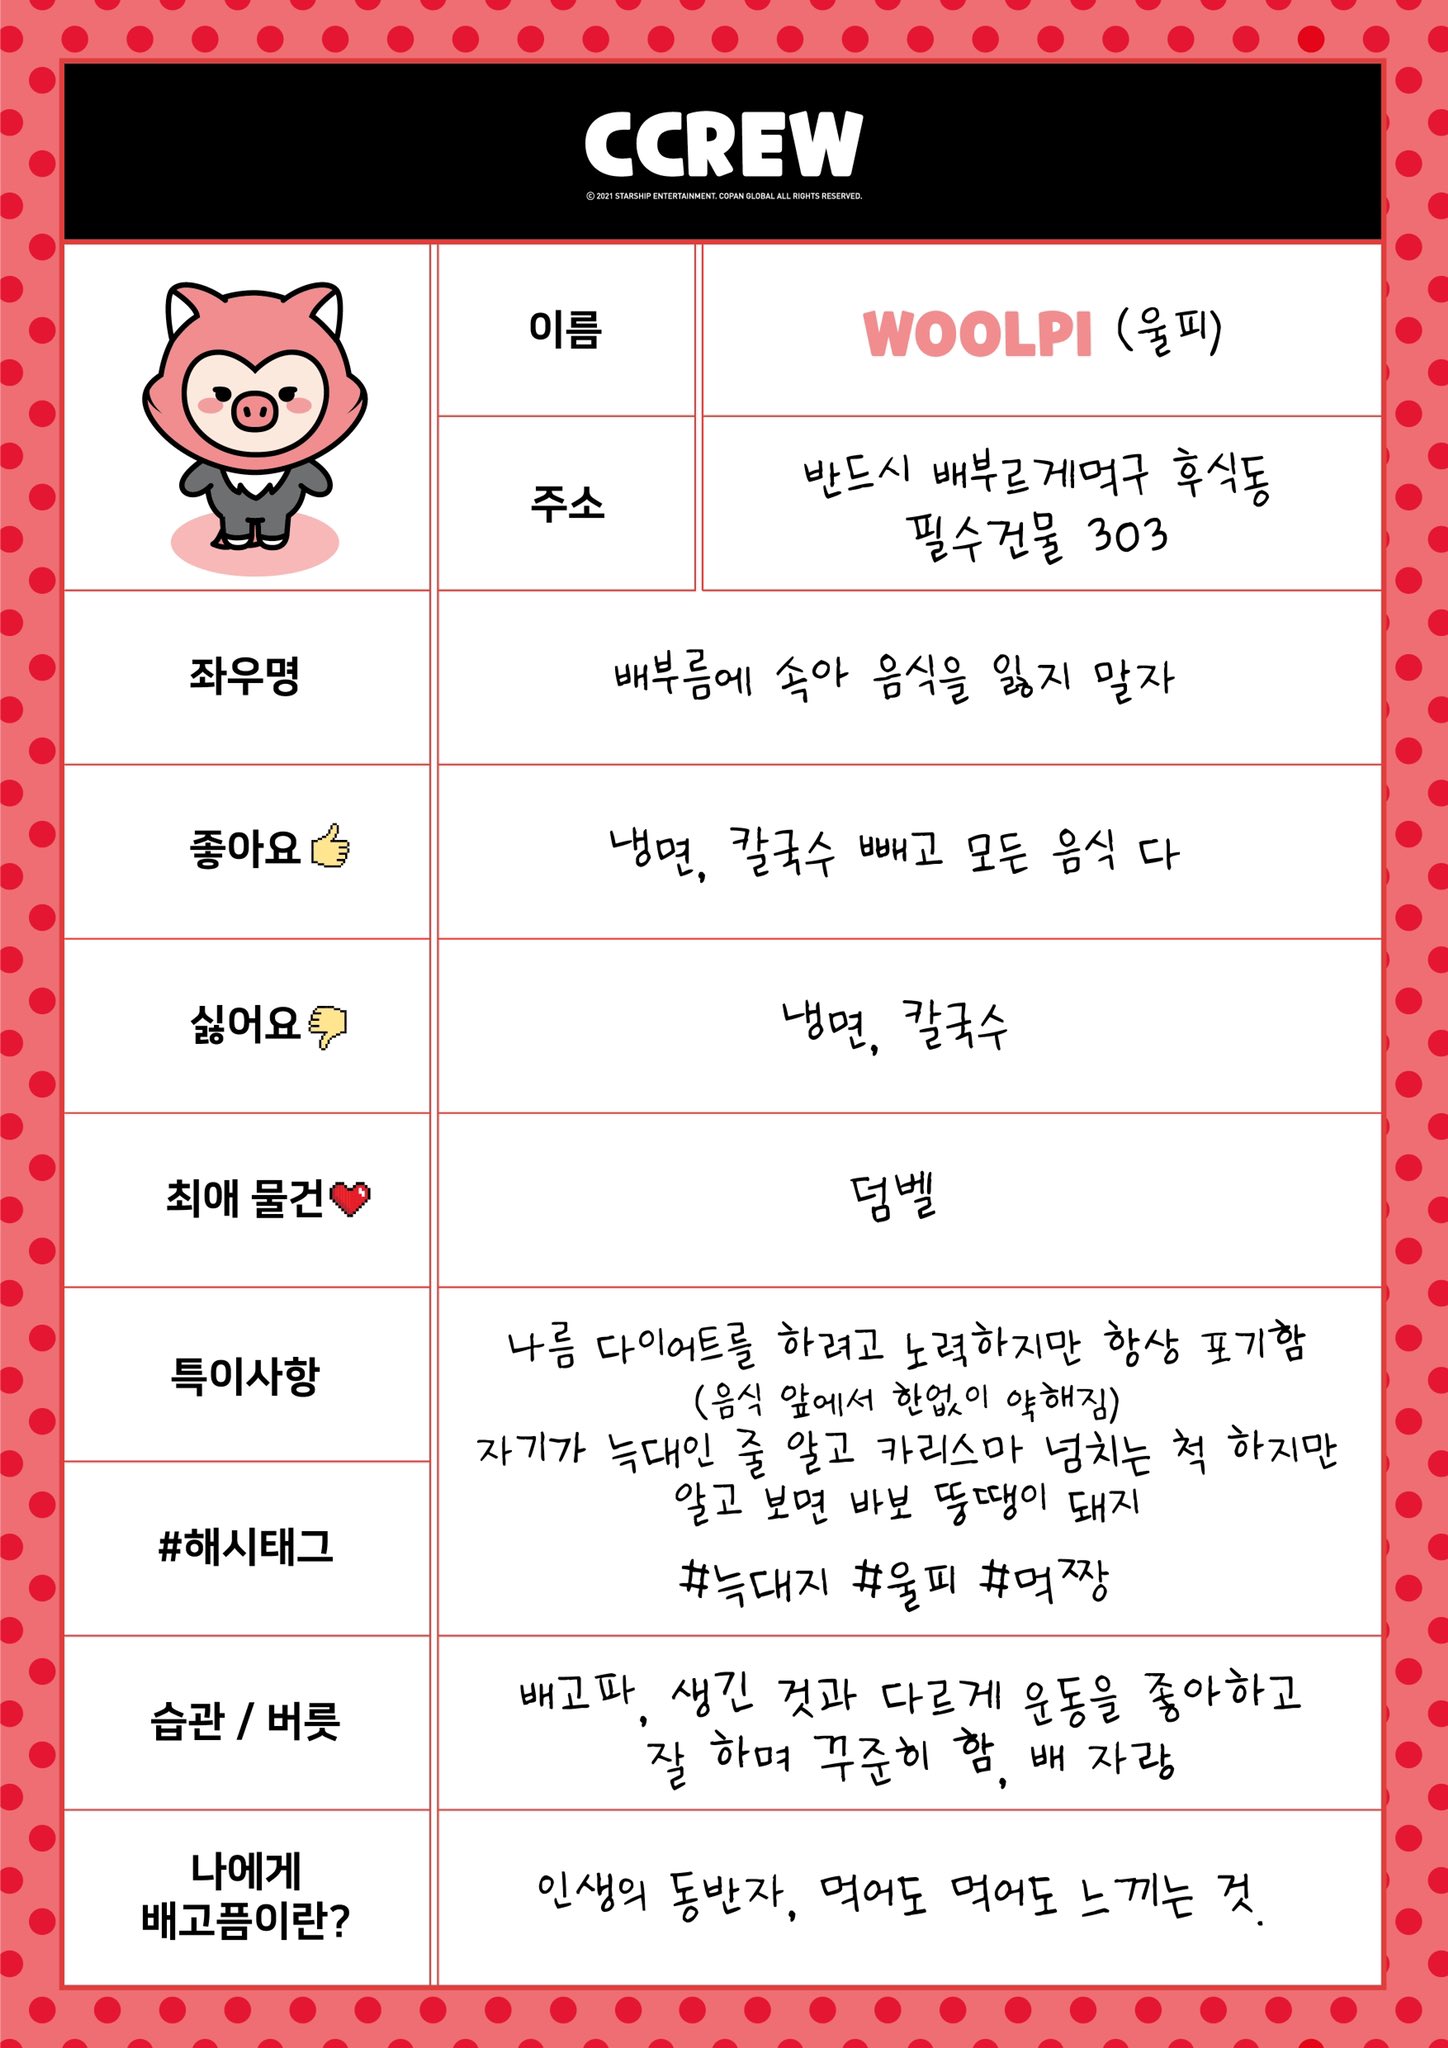 CCREW
© 2021 STARSHIP ENTERTAINMENT. COPAN GLOBAL ALL RIGHTS RESERVED.
이름
WOOLPI (울피)
주소
반드시 배부르게먹구 후식동
필수건물 303
좌우명
배부름에 속아 음식을 잃지 말자
좋아요
냉면, 칼국수 빼고 모든 음식 다
싫어요
냉면, 칼국수
최애 물건
덤벨
특이사항
나름 다이어트를 하려고 노력하지만 항상 포기함
(음식 앞에서 한없이 약해짐)
자기가 늑대인 줄 알고 카리스마 넘치는 척 하지만
알고 보면 바보 뚱땡이 돼지
#해시태그
#늑대지 #울피 #먹짱
습관 / 버릇
배고파, 생긴 것과 다르게 운동을 좋아하고
잘 하며 꾸준히 함, 배 자랑
나에게
배고픔이란?
인생의 동반자, 먹어도 먹어도 느끼는 것.